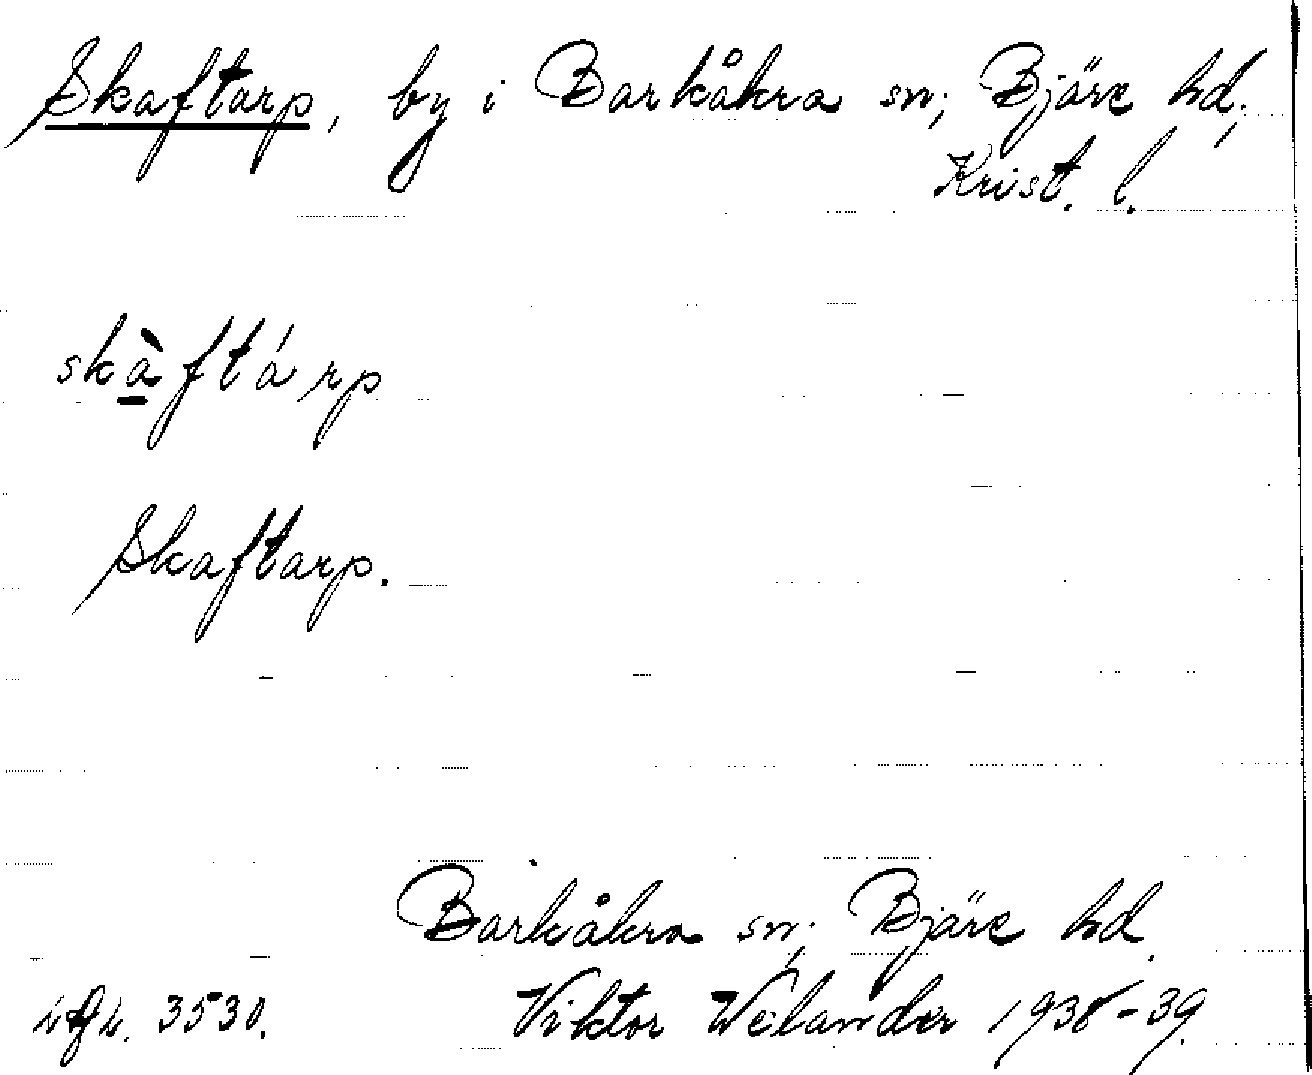 Skaftarp, by i Barkåkra sn; Bjäre hd;
Krist. l.
skàftárp
Skaftarp.
Barkåkra sn; Bjäre hd.
3530. Viktor Welander 1938-39.